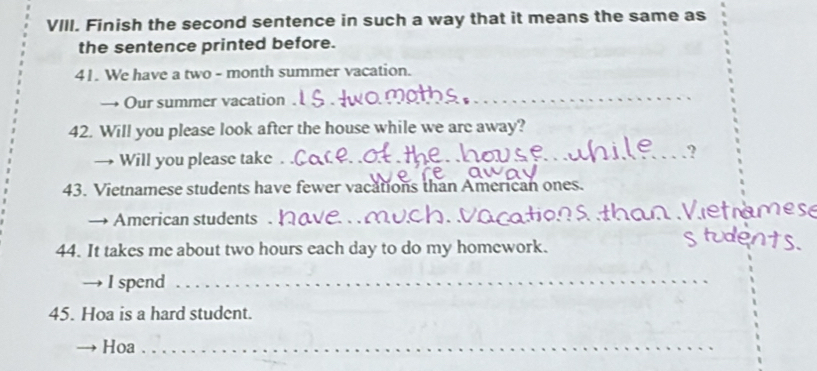 VIII. Finish the second sentence in such a way that it means the same as
the sentence printed before.
41. We have a two - month summer vacation.
→ Our summer vacation . is . two moths . . . . . . . . . . . . . . . . . . . . . . . .
42. Will you please look after the house while we are away?
→ Will you please take . . care . of . the . . house . . while . . . . ?
we're away
43. Vietnamese students have fewer vacations than American ones.
→ American students . have . . . much . vacations . than . Vietnamese
students.
44. It takes me about two hours each day to do my homework.
→ I spend . . . . . . . . . . . . . . . . . . . . . . . . . . . . . . . . . . . . . . . .
45. Hoa is a hard student.
→ Hoa . . . . . . . . . . . . . . . . . . . . . . . . . . . . . . . . . . . . . . . . . .